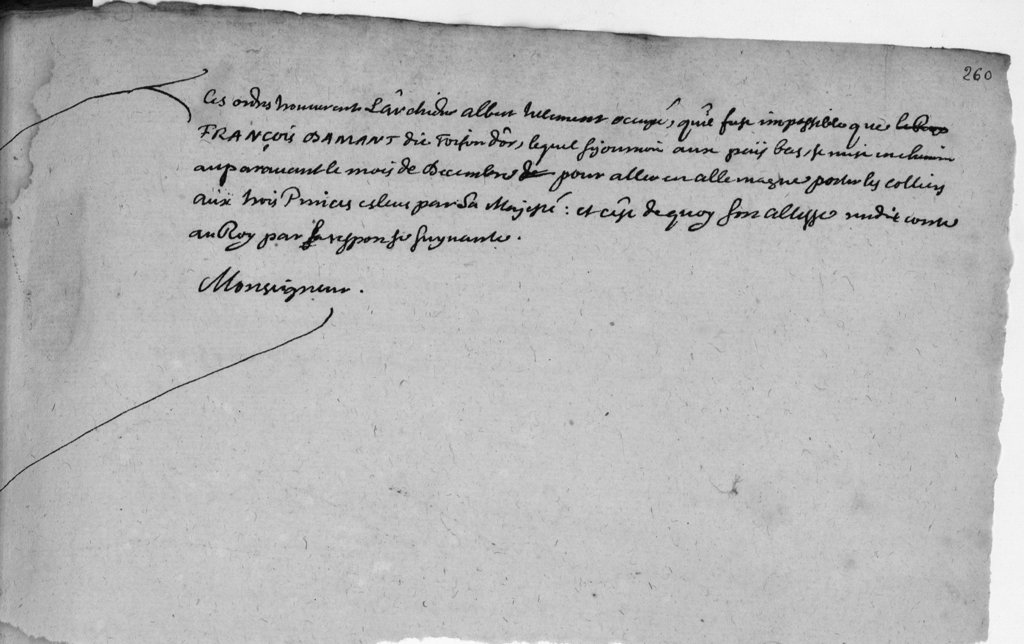 260
Ces ordres trouverent L'archiduc albert telement occupé, qu'il fust impossible que
FRANÇOIS DAMANT dit Toison d'or, lequel sejournoit aux païs bas, se mist en chemin
auparavant le mois de Decembre pour aller en allemagne porter les colliers
aux trois Princes esleus par Sa Majesté : et c'est de quoy son altesse rendit conte
au Roy par sa response suyvante .
Monseigneur .